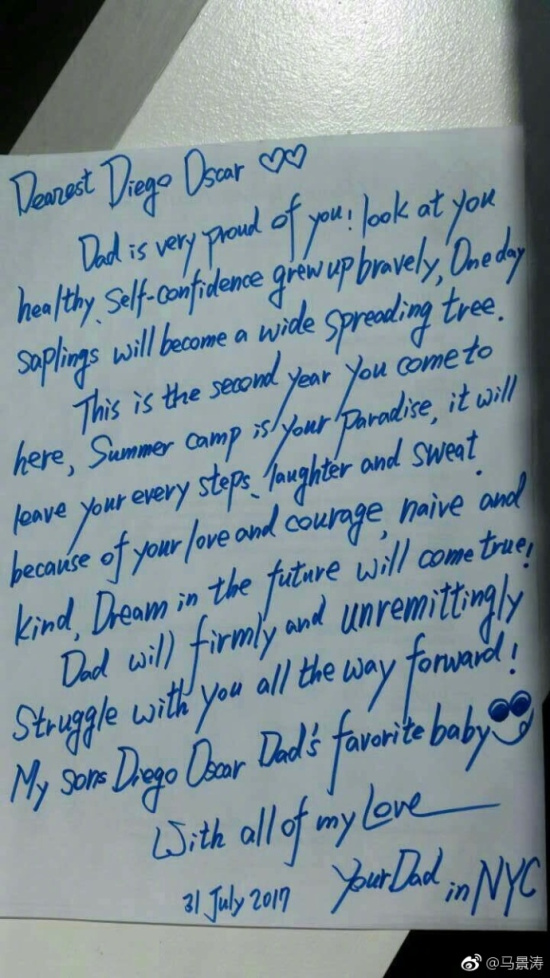 Dearest Diego Oscar ♡♡
Dad is very proud of you! look at you
healthy、Self-confidence grew up bravely, One day
saplings will become a wide spreading tree.
This is the second year you come to
here, Summer camp is your Paradise, it will
leave your every steps、laughter and sweat.
because of your love and courage, naive and
kind, Dream in the future will come true!
Dad will firmly and unremittingly
Struggle with you all the way forward!
My sons Diego Oscar Dad's favorite baby
With all of my Love
Your Dad in NYC
31 July 2017
@马景涛